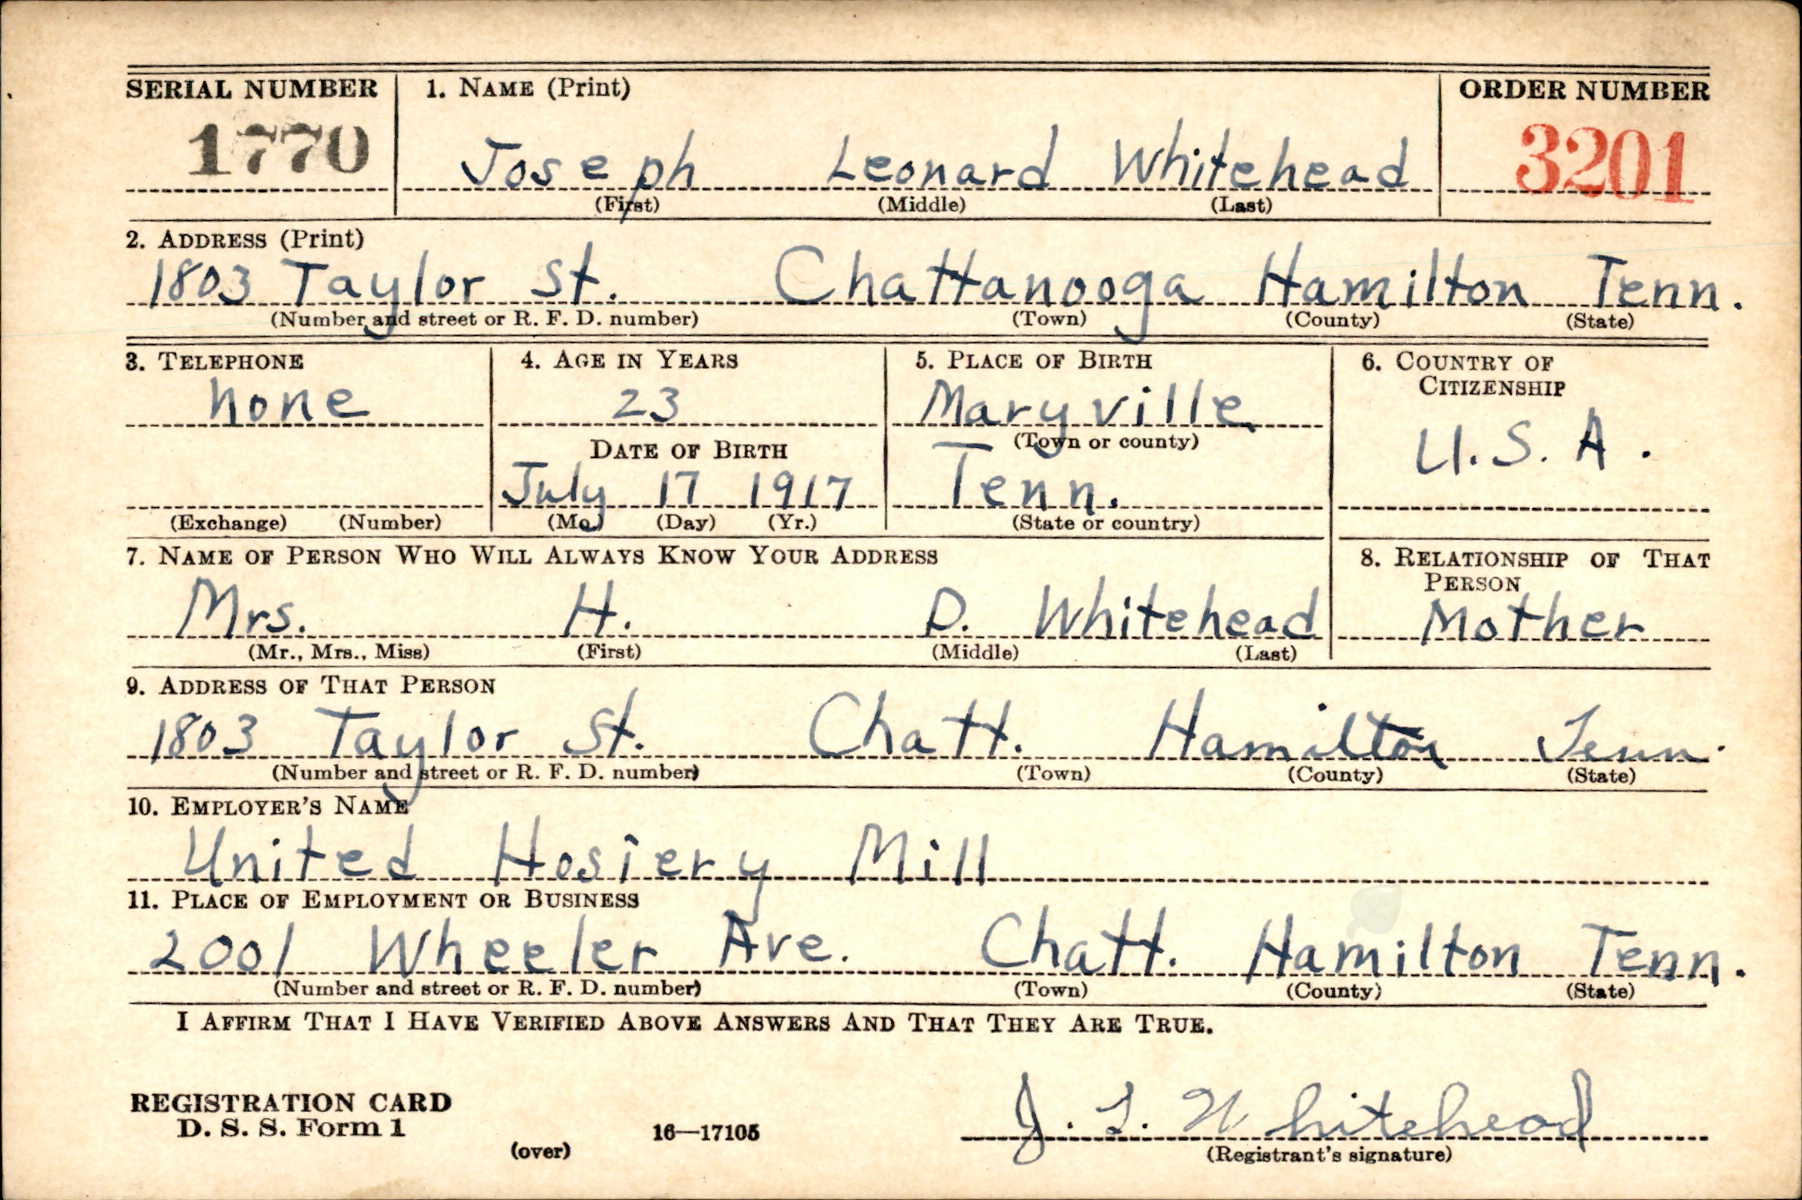 SERIAL NUMBER 1. NAME (Print) ORDER NUMBER
1770 Joseph Leonard Whitehead 3201
(First) (Middle) (Last)
2. ADDRESS (Print)
1803 Taylor St. Chattanooga Hamilton Tenn.
(Number and street or R. F. D. number) (Town) (County) (State)
3. TELEPHONE 4. AGE IN YEARS 5. PLACE OF BIRTH 6. COUNTRY OF
CITIZENSHIP
none 23 Maryville
(Town or county)
DATE OF BIRTH U.S.A.
July 17 1917 Tenn.
(Exchange) (Number) (Mo.) (Day) (Yr.) (State or country)
7. NAME OF PERSON WHO WILL ALWAYS KNOW YOUR ADDRESS 8. RELATIONSHIP OF THAT
PERSON
Mrs. H. D. Whitehead Mother
(Mr., Mrs., Miss) (First) (Middle) (Last)
9. ADDRESS OF THAT PERSON
1803 Taylor St. Chatt. Hamilton Tenn.
(Number and street or R. F. D. number) (Town) (County) (State)
10. EMPLOYER'S NAME
United Hosiery Mill
11. PLACE OF EMPLOYMENT OR BUSINESS
2001 Wheeler Ave. Chatt. Hamilton Tenn.
(Number and street or R. F. D. number) (Town) (County) (State)
I AFFIRM THAT I HAVE VERIFIED ABOVE ANSWERS AND THAT THEY ARE TRUE.
REGISTRATION CARD
D. S. S. Form 1 J. L. Whitehead
(over) 16—17105 (Registrant's signature)